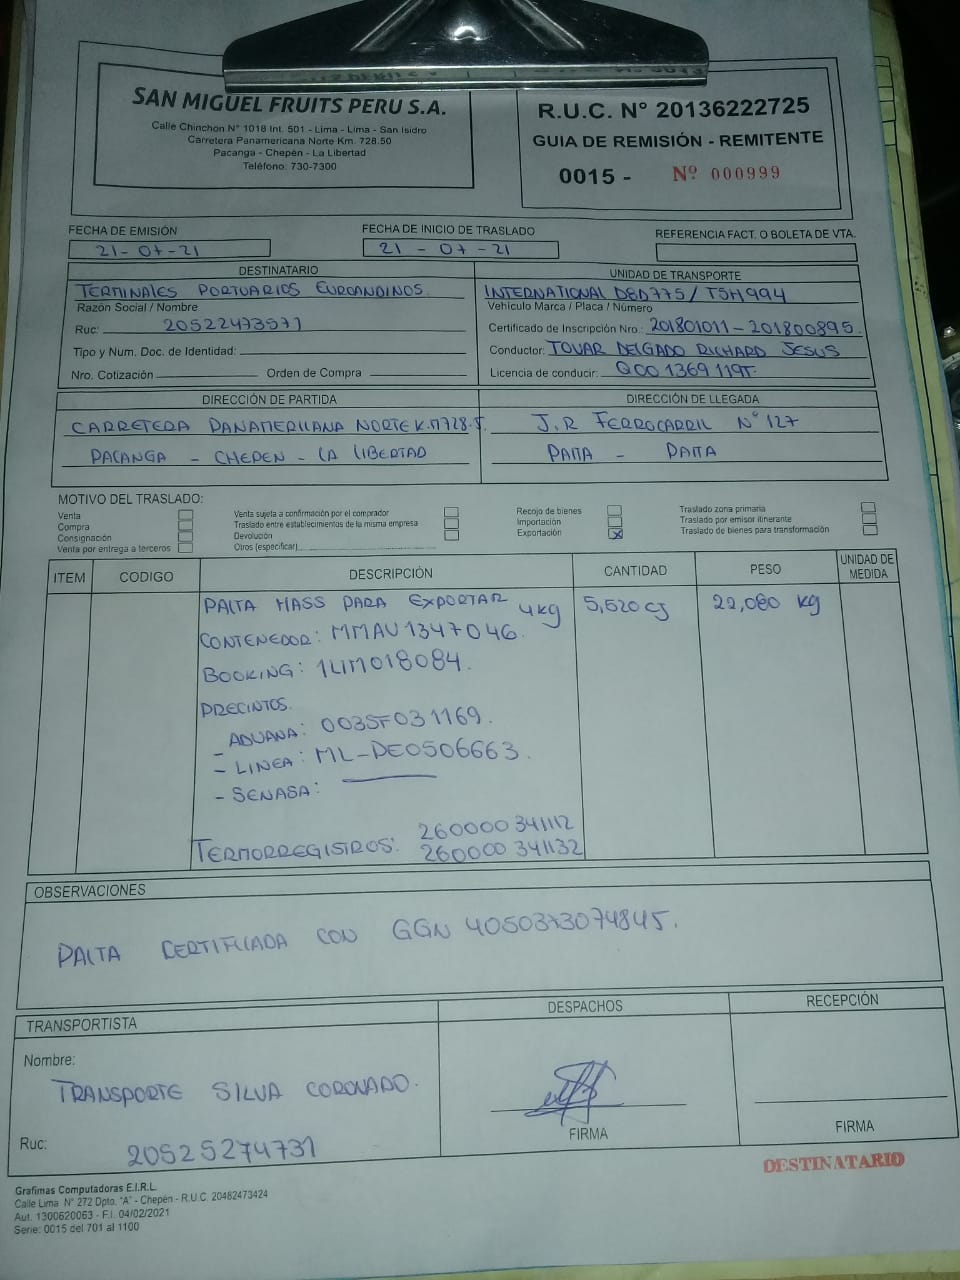 SAN MIGUEL FRUITS PERU S.A.
Calle Chinchon N° 1018 Int. 501 - Lima - Lima - San Isidro
Carretera Panamericana Norte Km. 728.50
Pacanga - Chepén - La Libertad
Teléfono: 730-7300
R.U.C. N° 20136222725
GUIA DE REMISIÓN - REMITENTE
0015 - Nº 000999
FECHA DE EMISIÓN
21-07-21
FECHA DE INICIO DE TRASLADO
21-07-21
REFERENCIA FACT. O BOLETA DE VTA.
DESTINATARIO
TERMINALES PORTUARIOS EUROANDINOS.
Razón Social / Nombre
Ruc: 20522473571
Tipo y Num. Doc. de Identidad:
Nro. Cotización Orden de Compra
UNIDAD DE TRANSPORTE
INTERNATIONAL D8D775/T5H994
Vehículo Marca / Placa / Número
Certificado de Inscripción Nro.: 201801011-201800895.
Conductor: TOVAR DELGADO RICHARD JESUS
Licencia de conducir:
DIRECCIÓN DE PARTIDA
CARRETERA PANAMERICANA NORTE K.M728.5
PACANGA - CHEPEN - LA LIBERTAD
DIRECCIÓN DE LLEGADA
J.R FERROCARRIL N° 127
PAITA - PAITA
MOTIVO DEL TRASLADO:
Venta
Compra
Consignación
Venta por entrega a terceros
Venta sujeta a confirmación por el comprador
Traslado entre establecimientos de la misma empresa
Devolución
Otros (especificar)
Recojo de bienes
Importación
Exportación X
Traslado zona primaria
Traslado por emisor itinerante
Traslado de bienes para transformación
ITEM CODIGO DESCRIPCIÓN CANTIDAD PESO UNIDAD DE MEDIDA
PALTA HASS PARA EXPORTAR 4kg 5,520 cj 22,080 kg
CONTENEDOR: MMAU1347046.
BOOKING: 1LIM018084.
PRECINTOS.
- ADUANA: 0035F031169.
- LINEA: ML-PE0506663.
- SENASA:
TERMORREGISTROS: 260000341112
260000341132
OBSERVACIONES
PALTA CERTIFICADA CON GGN 4050373074845.
TRANSPORTISTA
Nombre:
TRANSPORTE SILVA CORONADO.
Ruc: 20525274731
DESPACHOS
FIRMA
RECEPCIÓN
FIRMA
DESTINATARIO
Grafimas Computadoras E.I.R.L.
Calle Lima N° 272 Dpto. "A" - Chepén - R.U.C. 20482473424
Aut. 1300620063 - F.I. 04/02/2021
Serie: 0015 del 701 al 1100